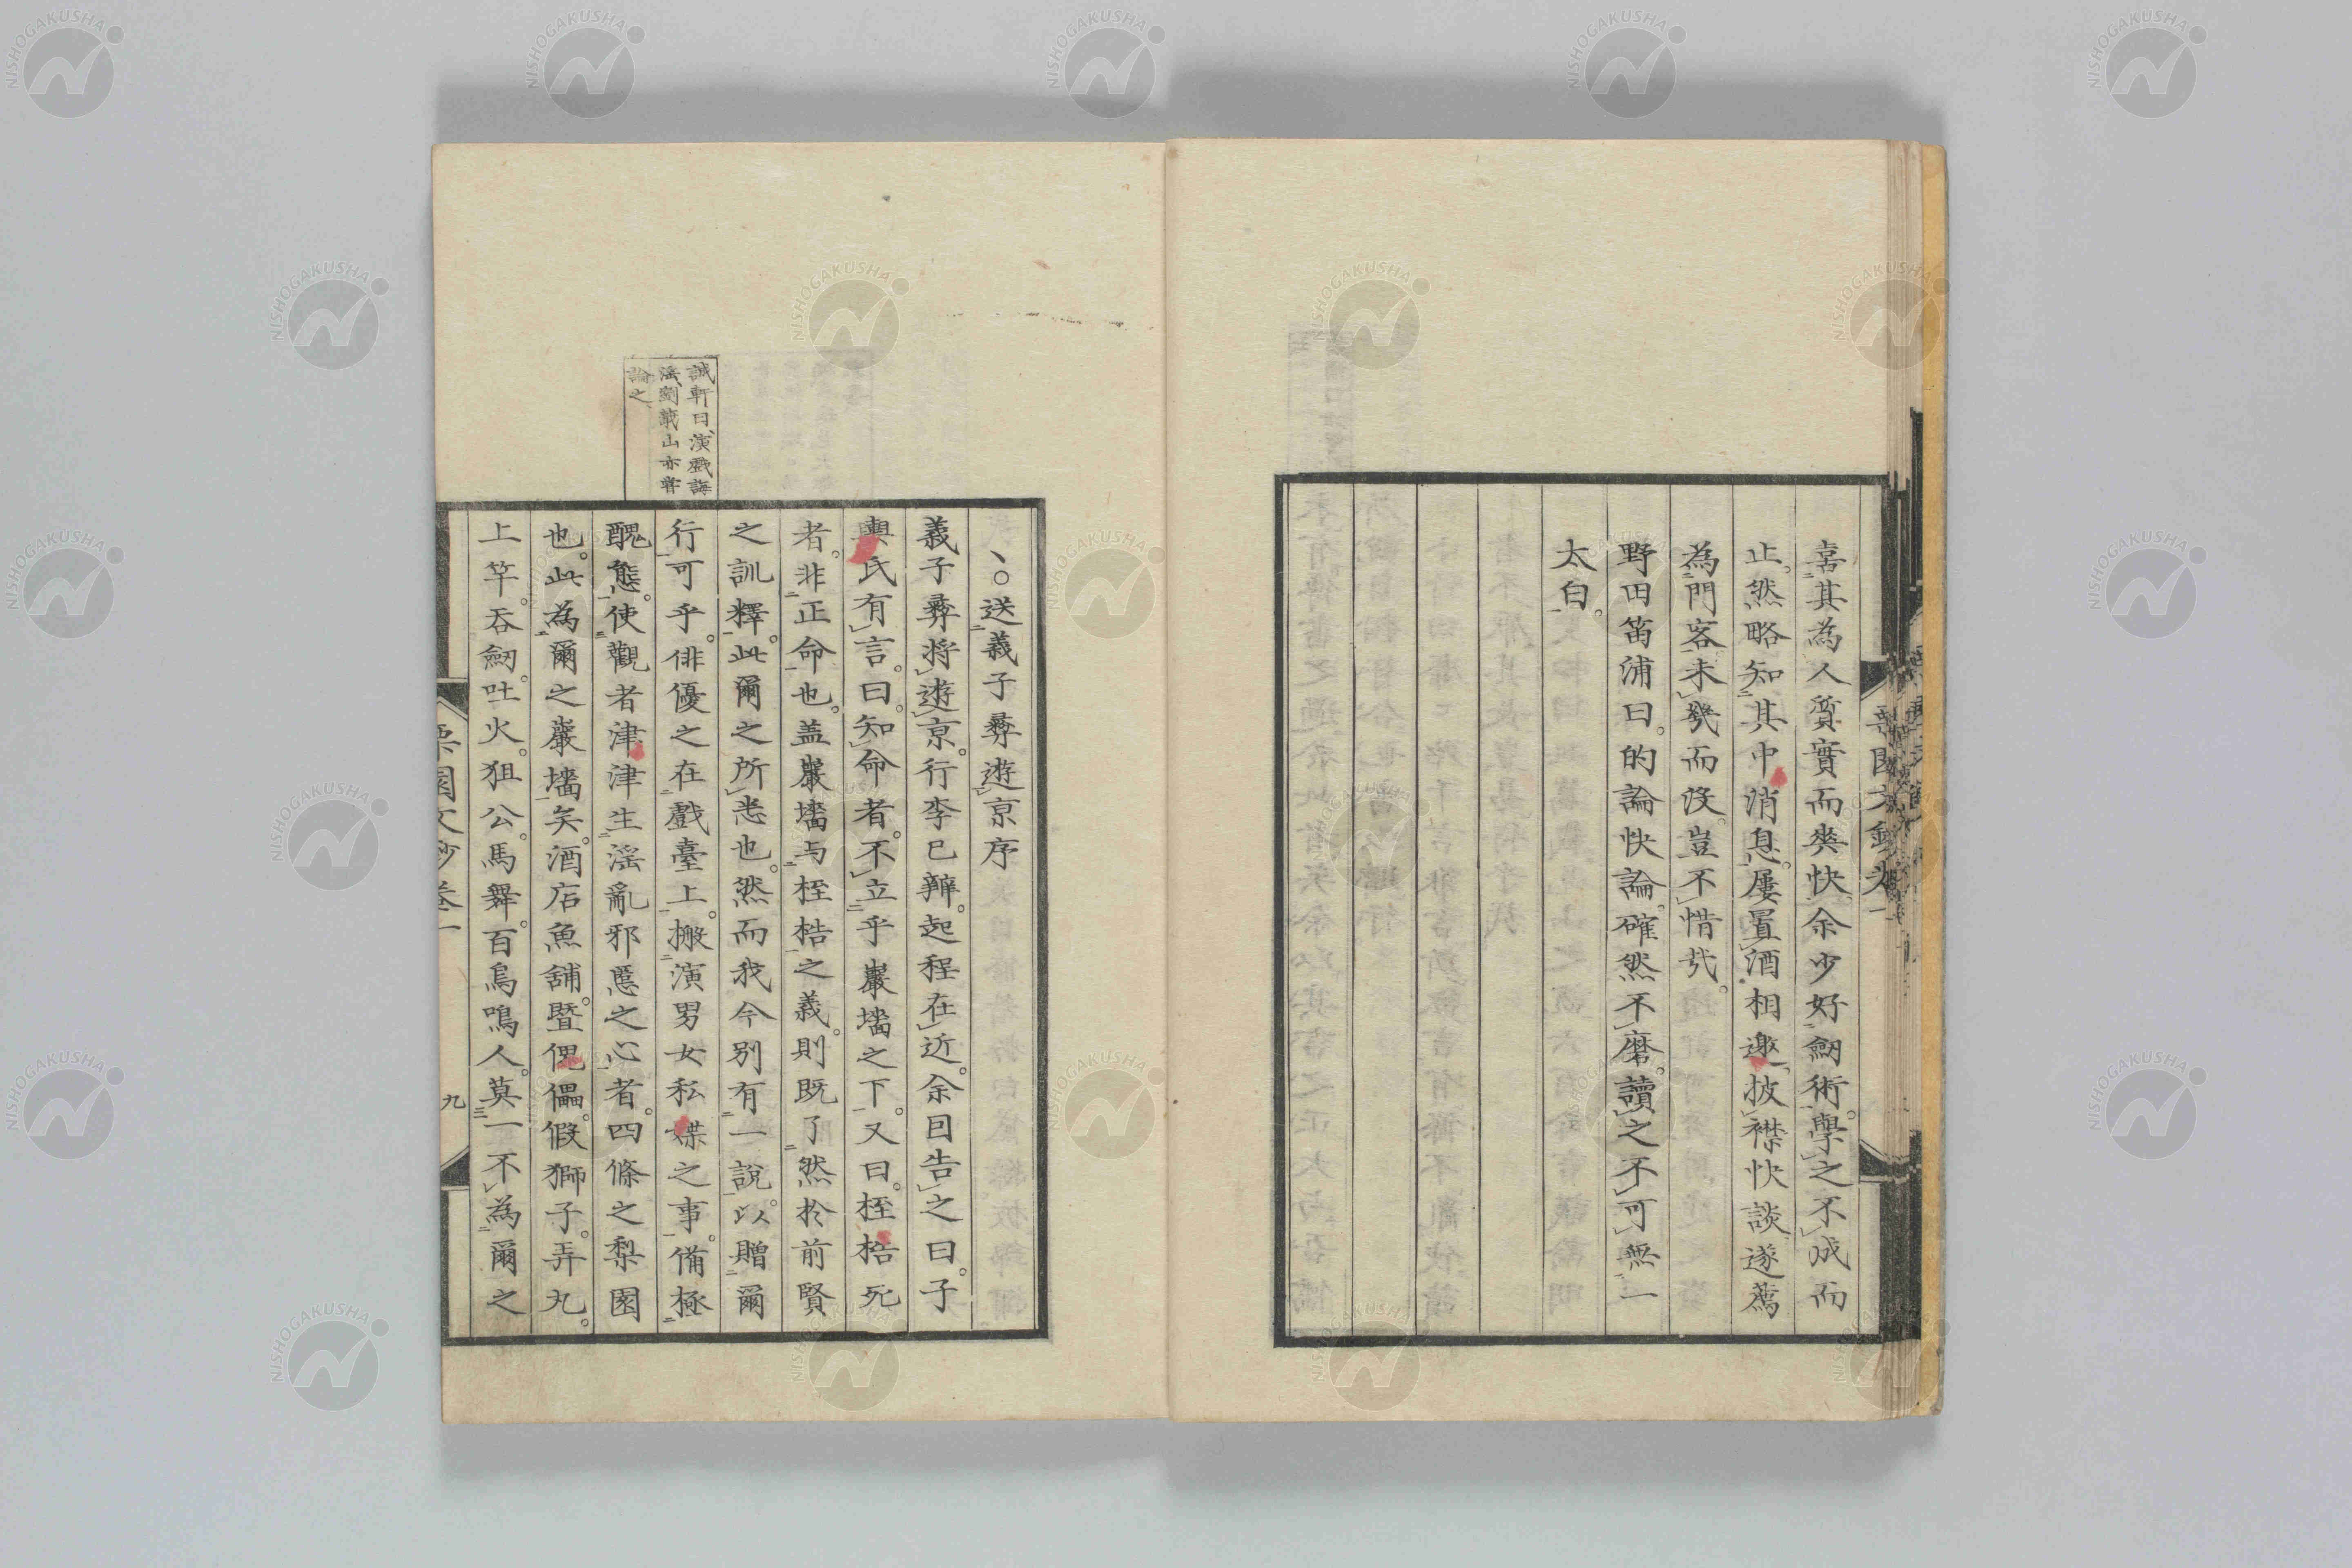 喜其為人質實而爽快余少好劒術。學之不成而
止。然略知其中消息。屢置酒相邀、披襟快談遂薦
為門客未發而沒。豈不惜哉。
野田笛浦曰。的論快論。確然不磨。讀之不可無一
太白。
、○送義子彝遊京序
義子彝將遊京。行李已辦。起程在近。余因告之曰。子
輿氏有言。曰。知命者。不立乎巖墻之下。又曰。桎梏死
者。非正命也。盖巖墻与桎梏之義。則既了然於前賢
之訓釋。此爾之所悉也。然而我今別有一說。以贈爾
行可乎。俳優之在戲臺上。搬演男女私媟之事。備極
醜態。使觀者津津生淫亂邪慝之心者。四條之梨園
也。此為爾之巖墻矣。酒店魚舖。曁傀儡。假獅子。弄丸。
上竿。吞劒。吐火。狙公。馬舞。百鳥鳴人。莫一不為爾之
誠軒曰、演戲誨
淫、劉蕺山亦嘗
論之、
栗園文鈔卷一
九
NISHOGAKUSHA